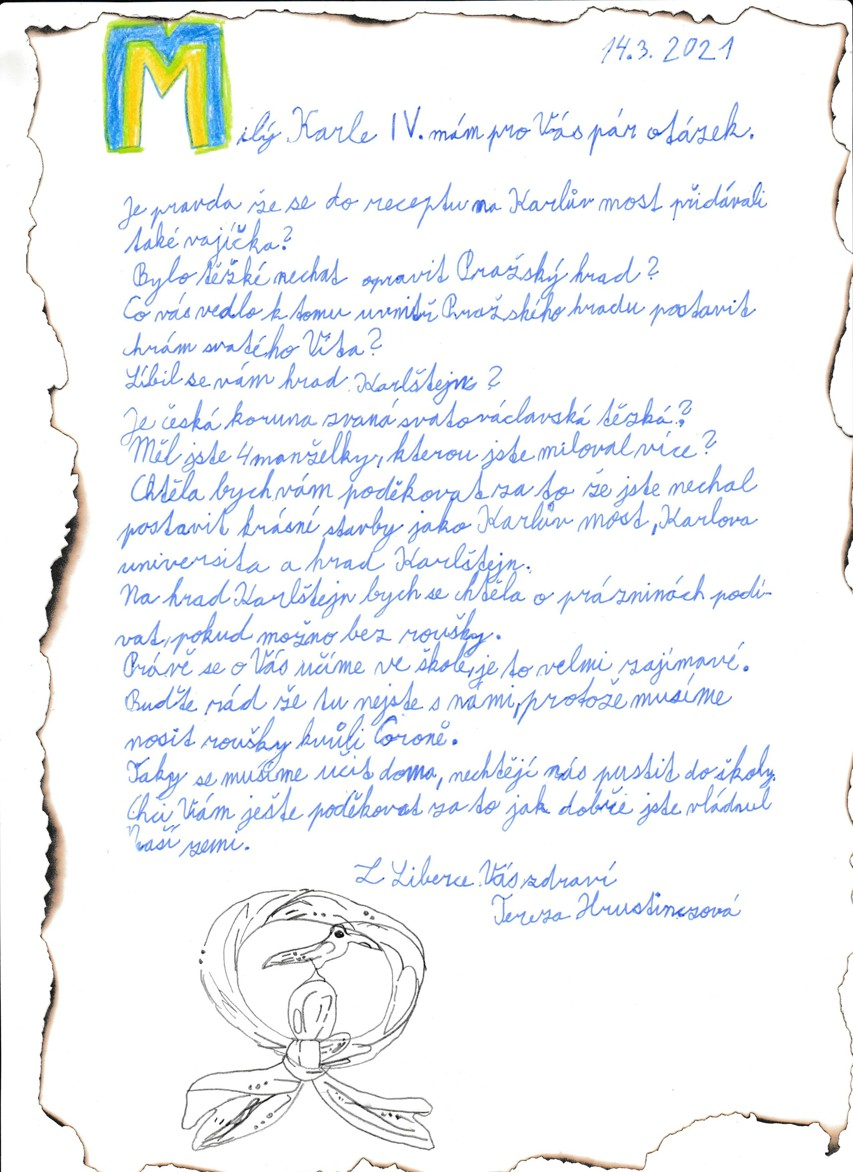 14.3. 2021
Milý Karle IV. mám pro Vás pár otázek.
Je pravda že se do receptu na Karlův most přidávali
také vajíčka?
Bylo těžké nechat opravit Pražský hrad?
Co vás vedlo k tomu uvnitř Pražského hradu postavit
chrám svatého Víta?
Líbil se vám hrad Karlštejn?
Je česká koruna zvaná svatováclavská těžká?
Měl jste 4 manželky, kterou jste miloval více?
Chtěla bych vám poděkovat za to že jste nechal
postavit krásné stavby jako Karlův most, Karlova
universita a hrad Karlštejn.
Na hrad Karlštejn bych se chtěla o prázninách podí-
vat, pokud možno bez roušky.
Právě se o Vás učíme ve škole, je to velmi zajímavé.
Buďte rád že tu nejste s námi, protože musíme
nosit roušky kvůli Coroně.
Taky se musíme učit doma, nechtějí nás pustit do školy.
Chci Vám ještě poděkovat za to jak dobře jste vládnul
Naší zemi.
Z Liberce Vás zdraví
Tereza Hrustinczová